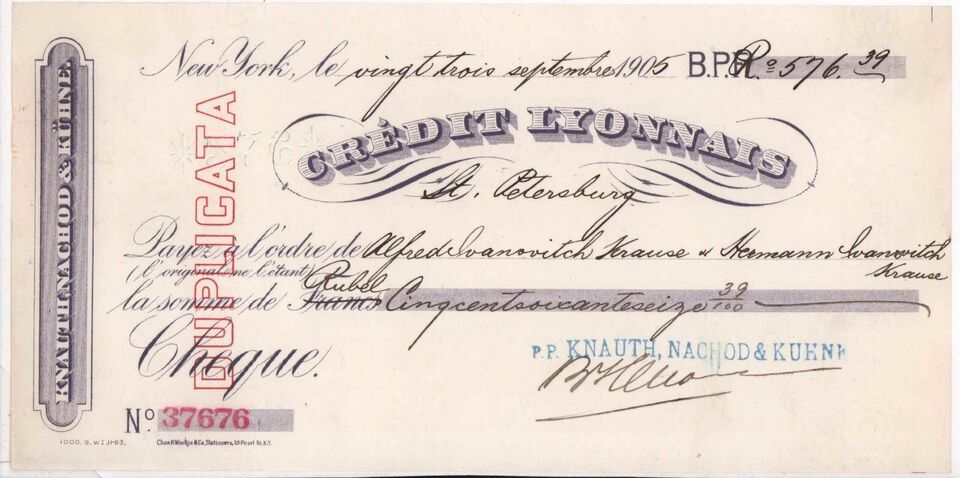 New York, le vingt trois septembre 1905 B.P.R.º 576.39
KNAUTH.NACHOD & KÜHNE.
DUPLICATA
CRÉDIT LYONNAIS
St. Petersburg
Payez à l'ordre de Alfred Ivanovitch Krause & Hermann Ivanovitch Krause
(l'original ne l'étant)
la somme de Francs Rubel Cinqcentsoixanteseize 39/100
Cheque.
P.P. KNAUTH, NACHOD & KUHNE
Nº 37676
1000. 9. W I JI-03.
Chas H Woetje & Co, Stationers, 191 Pearl St. N.Y.